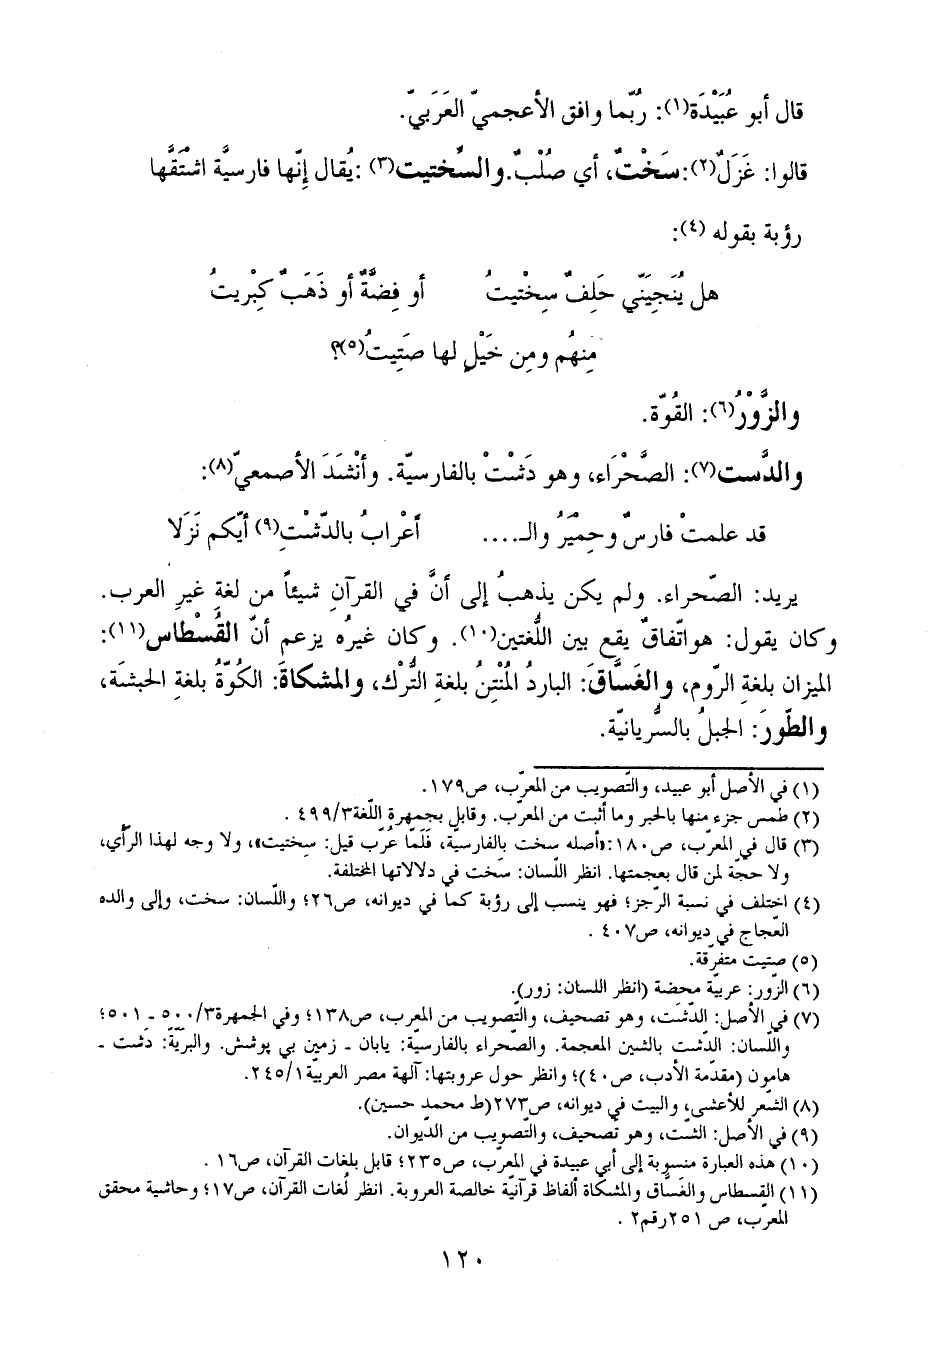 قال أبو عُبَيْدَة(١): رُبّما وافق الأعجميّ العَرَبيّ.
قالوا: غَزَلٌ(٢):سَخْتٌ، أي صُلْبٌ.والسِّختيت(٣) :يُقال إنّها فارسيَّة اشتَقَّها
رؤبة بقوله (٤):
هل يُنَجِيَنّي حَلِفٌ سِخْتيتُ أو فِضَّةٌ أو ذَهَبٌ كِبْريتُ
مِنهُم ومِن خَيْلٍ لها صَتِيتُ(٥)؟
والزَّوْرُ(٦): القُوّة.
والدَّست(٧): الصَّحْرَاء، وهو دَشْتْ بالفارسيّة. وأنْشَدَ الأصمعيّ(٨):
قد علمتْ فارسٌ وحِمْيَرُ والـ.... أعْرابُ بالدّشْتِ(٩) أيّكم نَزَلا
يريد: الصّحراء. ولم يكن يذهبُ إلى أنَّ في القرآنِ شيئاً من لغةِ غيرِ العرب.
وكان يقول: هواتّفاقٌ يقع بين اللُّغتين(١٠). وكان غيرُه يزعم أنّ القُسْطاس(١١):
الميزان بلغةِ الرّوم، والغَسَّاقَ: الباردُ المُنْتِنُ بلغةِ التُّرْك، والمشكاةَ: الكُوّةُ بلغةِ الحبشَة،
والطّورَ: الجبلُ بالسُّريانيّة.
(١) في الأصل أبو عبيد، والتّصويب من المعرّب، ص١٧٩.
(٢) طمس جزء منها بالحبر وما أثبت من المعرّب. وقابل بجمهرة اللّغة٤٩٩/٣ .
(٣) قال في المعرّب، ص١٨٠:«أصله سخت بالفارسيّة، فَلَمّا عُرّب قيل: سِختيت»، ولا وجه لهذا الرأي،
ولا حجّة لمن قال بعجمتها. انظر اللّسان: سَخت في دلالاتها المختلفة.
(٤) اختلف في نسبة الرّجز؛ فهو ينسب إلى رؤبة كما في ديوانه، ص٢٦؛ واللّسان: سخت، وإلى والده
العجاج في ديوانه، ص٤٠٧ .
(٥) صتيت متفرّقة.
(٦) الزّور: عربيّة محضة (انظر اللسان: زور).
(٧) في الأصل: الدّشَت، وهو تصحيف، والتّصويب من المعرب، ص١٣٨؛ وفي الجمهرة٥٠٠/٣ ـ ٥٠١؛
واللّسان: الدّشت بالشين المعجمة. والصّحراء بالفارسيّة: يابان ـ زمين بي پوشش. والبَريَّة: دَشت ـ
هامون (مقدّمة الأدب، ص٤٠)؛ وانظر حول عروبتها: آلهة مصر العربيّة٢٤٥/١.
(٨) الشّعر للأعشى، والبيت في ديوانه، ص٢٧٣(ط محمد حسين).
(٩) في الأصل: الشّت، وهو تصحيف، والتّصويب من الدّيوان.
(١٠) هذه العبارة منسوبة إلى أبي عبيدة في المعرّب، ص٢٣٥؛ قابل بلغات القرآن، ص١٦ .
(١١) القسطاس والغسّاق والمشكاة ألفاظ قرآنيّة خالصة العروبة. انظر لُغات القرآن، ص١٧؛ وحاشية محقق
المعرّب، ص ٢٥١رقم٢ .
١٢٠